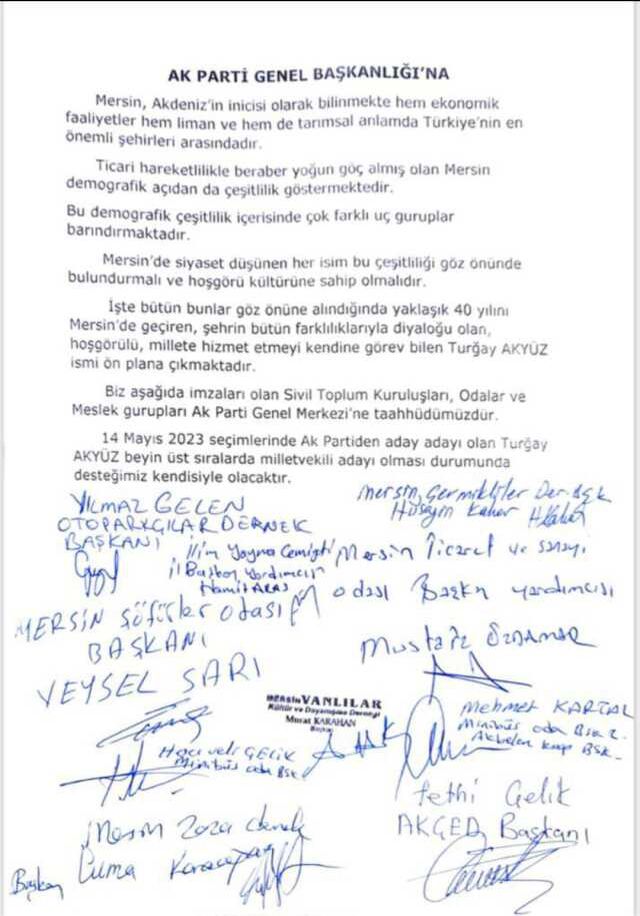 AK PARTİ GENEL BAŞKANLIĞI'NA
Mersin, Akdeniz'in inicisi olarak bilinmekte hem ekonomik
faaliyetler hem liman ve hem de tarımsal anlamda Türkiye'nin en
önemli şehirleri arasındadır.
Ticari hareketlilikle beraber yoğun göç almış olan Mersin
demografik açıdan da çeşitlilik göstermektedir.
Bu demografik çeşitlilik içerisinde çok farklı uç guruplar
barındırmaktadır.
Mersin'de siyaset düşünen her isim bu çeşitliliği göz önünde
bulundurmalı ve hoşgörü kültürüne sahip olmalıdır.
İşte bütün bunlar göz önüne alındığında yaklaşık 40 yılını
Mersin'de geçiren, şehrin bütün farklılıklarıyla diyaloğu olan,
hoşgörülü, millete hizmet etmeyi kendine görev bilen Turğay AKYÜZ
ismi ön plana çıkmaktadır.
Biz aşağıda imzaları olan Sivil Toplum Kuruluşları, Odalar ve
Meslek gurupları Ak Parti Genel Merkezi'ne taahhüdümüzdür.
14 Mayıs 2023 seçimlerinde Ak Partiden aday adayı olan Turğay
AKYÜZ beyin üst sıralarda milletvekili adayı olması durumunda
desteğimiz kendisiyle olacaktır.
YILMAZ GELEN
OTOPARKÇILAR DERNEK
BAŞKANI
Mersin Germikliler Der.
Hüseyin
İlim Yayma Cemiyeti
İl Başkan Yardımcısı
Hamit ARAS
Mersin Ticaret ve sanayi
odası Başkn yardımcısı
Mustafa ÖZDAMAR
MERSİN şöförler odası
BAŞKANI
VEYSEL SARI
MERSİN VANLILAR
Kültür ve Dayanışma Derneği
Murat KARAHAN
Başkan
Mehmet KARTAL
Minibüs oda Bşk
Hacı veli ÇELİK
Minibüs oda Bşk
Fethi Çelik
AKGED Başkanı
Mersin
Başkan Cuma